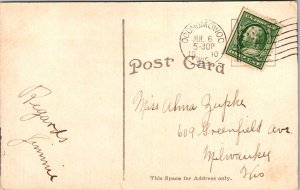 OCONOMOWOC
JUL 6
5-30P
Post Card
Regards
Jimmie
Miss Alma Zupke
609 Greenfield Ave.
Milwaukey
Wis
This Space for Address only.